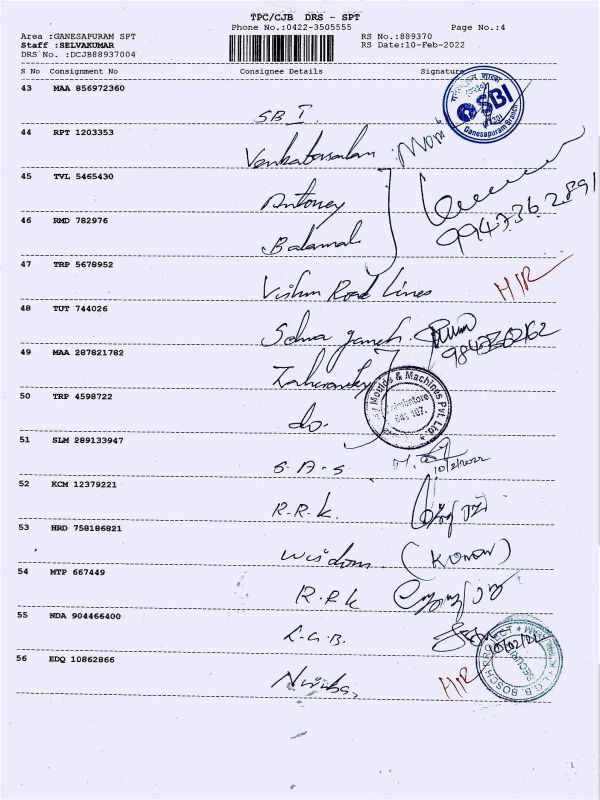 TPC/CJB DRS - SPT
Phone No.:0422-3505555 Page No.:4
Area :GANESAPURAM SPT RS No.:889370
Staff :SELVAKUMAR RS Date:10-Feb-2022
DRS No. :DCJB88937004
S No Consignment No Consignee Details Signature
43 MAA 856972360
SBI
SBI
Ganesapuram Branch
44 RPT 1203353
Venkatasalam Mani
45 TVL 5465430
Antoney
9943362891
46 RMD 782976
Balamal
47 TRP 5678952
Vishnu Road Lines H/R
48 TUT 744026
ganesh
49 MAA 287821782
Moulds & Machines Pvt. Ltd.
Coimbatore
641 107.
50 TRP 4598722
do.
51 SLM 289133947
S.A.S 10/2/2022
52 KCM 12379221
R.R.K.
53 HRD 758186821
Wisdom
54 MTP 667449
R.R.K
55 NDA 904466400
L.G.B. 10/02/22
L.G.B. BOSCH PROJECT
SECURITY
56 EDQ 10862866
H/R